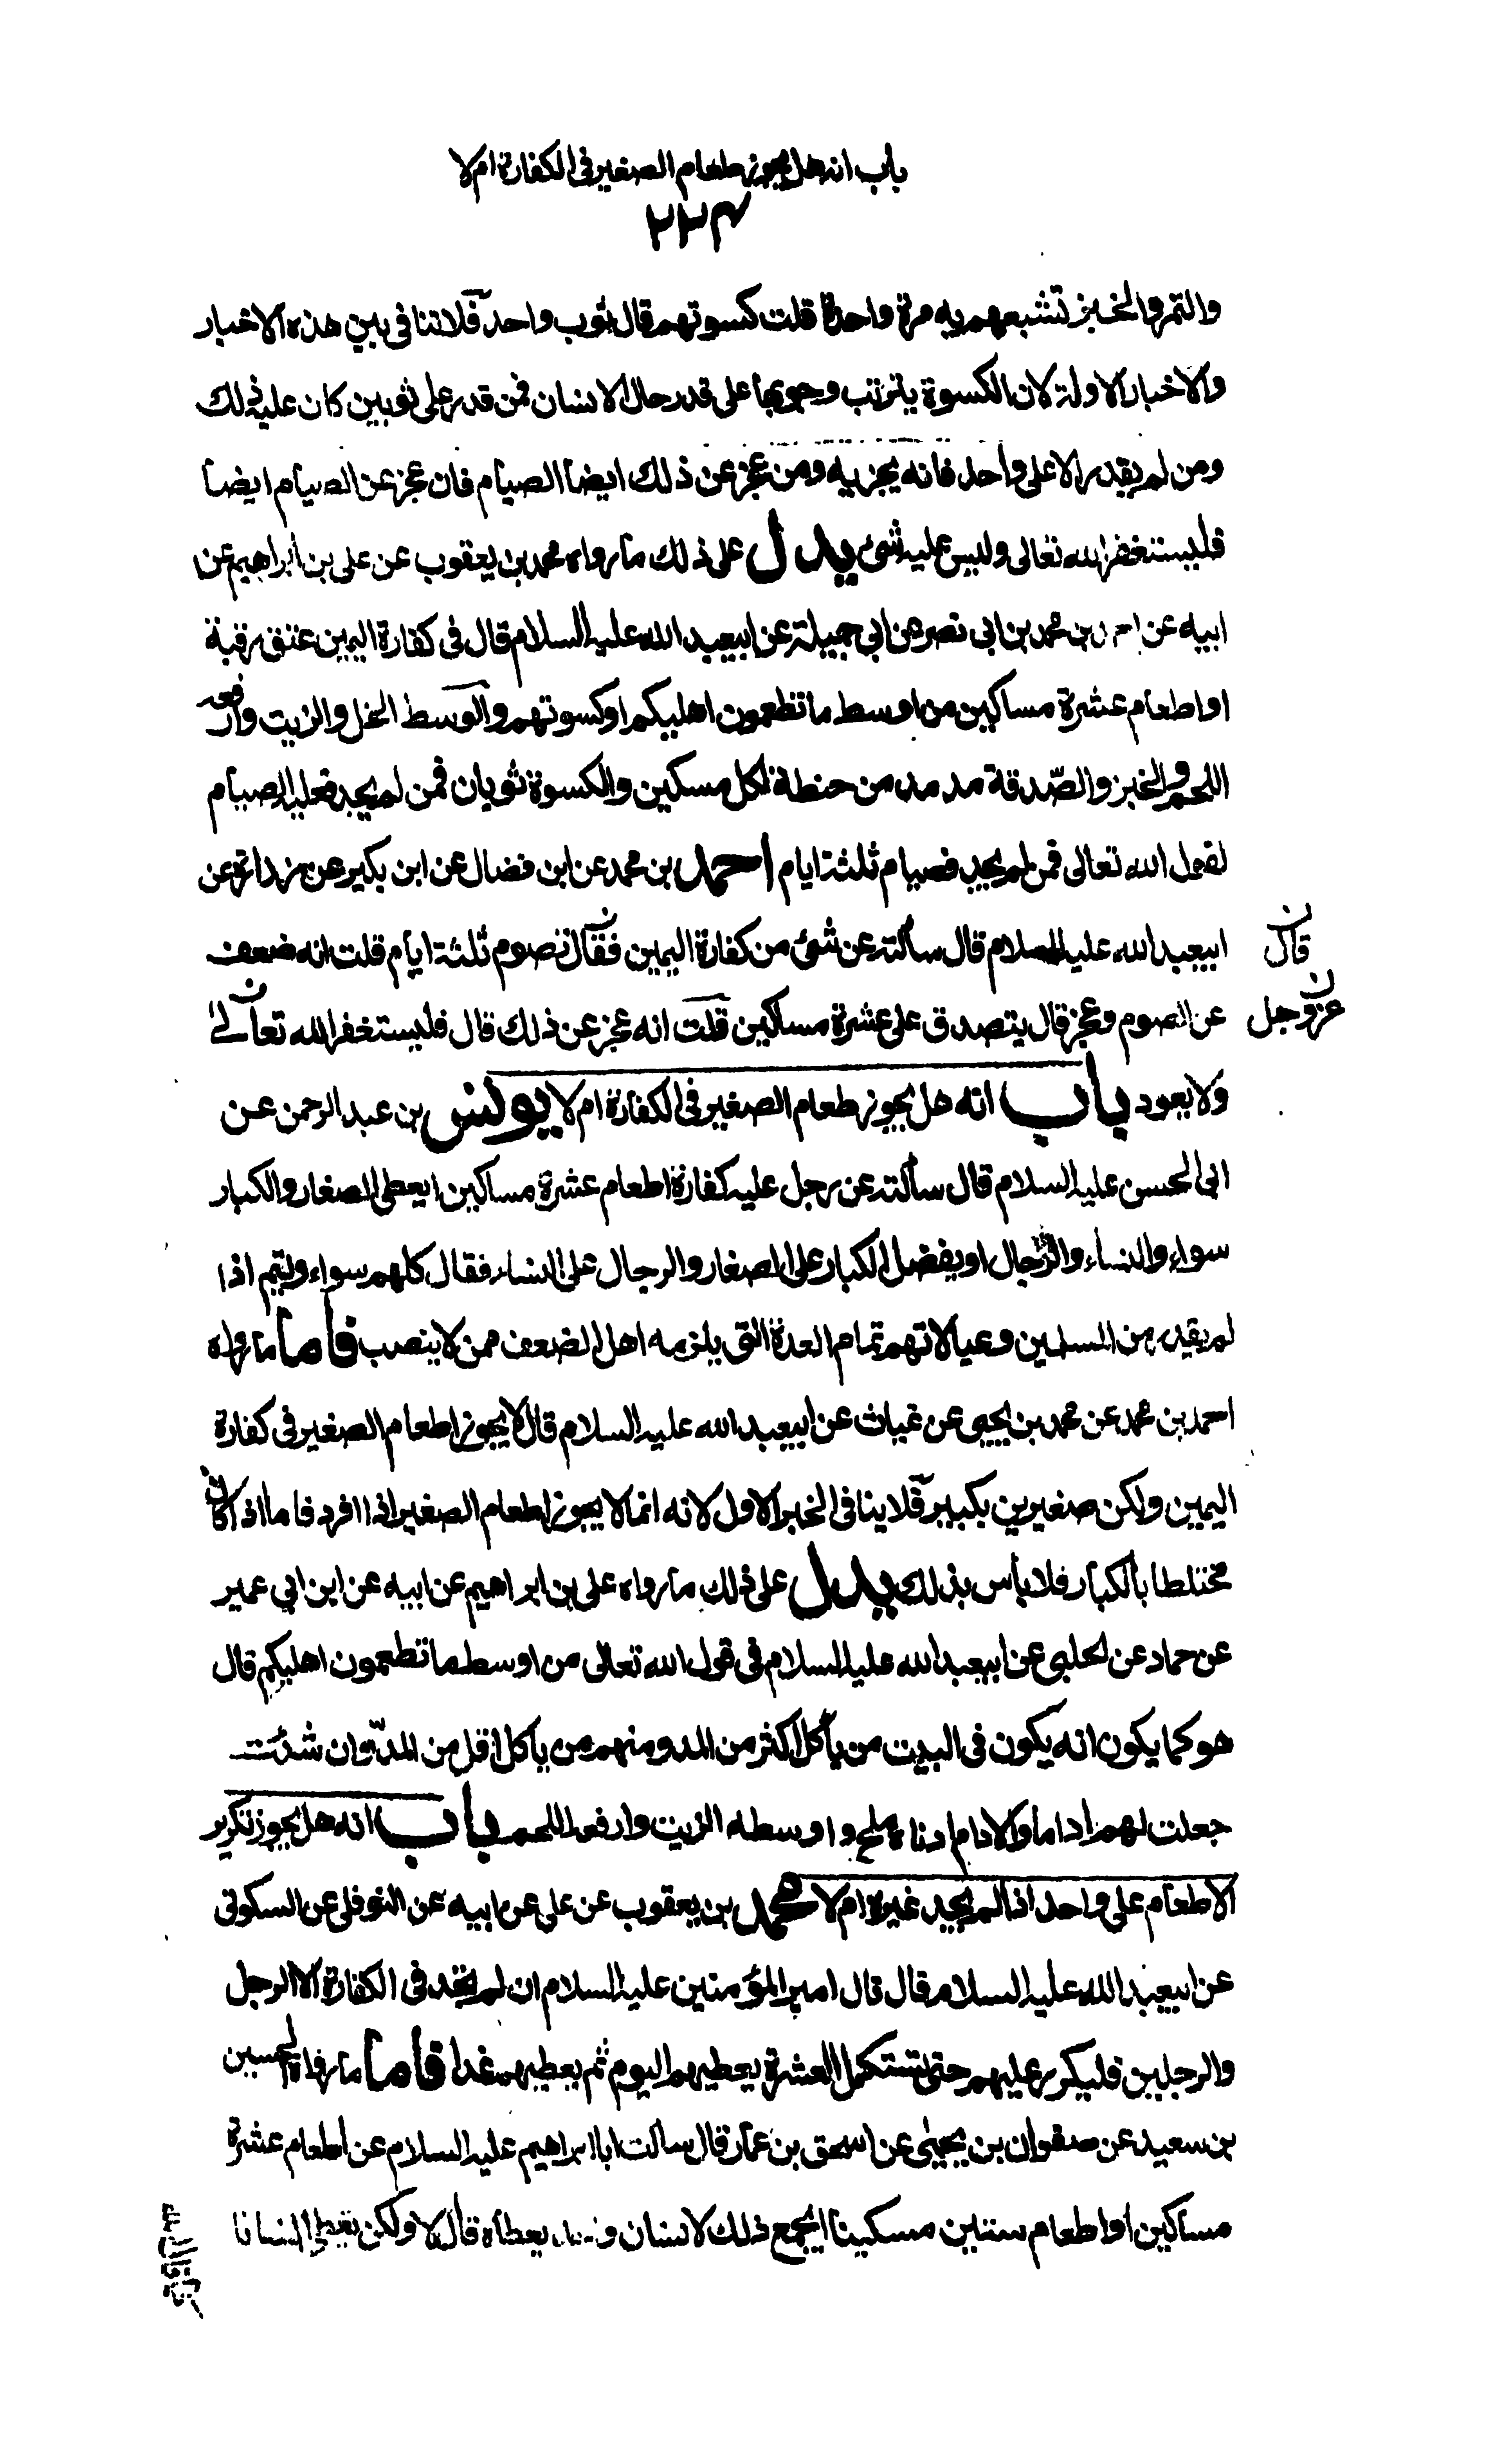 باب انه هل يجوز طعام الصغير فى الكفارة ام لا
٢٢٣
والتمر والخبز تشبعهم به مرة واحدة قلت كسوتهم قال ثوب واحد فلا تنافى بين هذه الاخبار
والاخبار الاولة لان الكسوة يترتب وجوبها على قدر حال الانسان فمن قدر على ثوبين كان عليه ذلك
ومن لم يقدر الا على واحد فانه يجزيه ومن عجز عن ذلك ايضا الصيام فان عجز عن الصيام ايضا
فليستغفر الله تعالى وليس عليه شئ يدل على ذلك ما رواه محمد بن يعقوب عن على بن ابراهيم عن
ابيه عن احمد بن محمد بن ابى نصر عن ابي جميلة عن ابيعبد الله عليه السلام قال فى كفارة اليمين عتق رقبة
او اطعام عشرة مساكين من اوسط ما تطعمون اهليكم او كسوتهم والوسط الخل والزيت وارفعه
اللحم والخبز والصّدقة مد مد من حنطة لكل مسكين والكسوة ثوبان فمن لم يجد فعليه الصيام
لقول الله تعالى فمن لم يجد فصيام ثلثة ايام احمد بن محمد عن ابن فضال عن ابن بكير عن زرارة عن
ابيعبد الله عليه السلام قال سألته عن شئ من كفارة اليمين فقال تصوم ثلثة ايام قلت انه ضعف
قال ن
عن الصوم وعجز قال يتصدق على عشرة مساكين قلت انه عجز عن ذلك قال فليستغفر الله تعالى
عز وجل ن
ولا يعود باب انه هل يجوز طعام الصغير فى الكفارة ام لا يونس بن عبد الرحمن عن
ابى الحسن عليه السلام قال سألته عن رجل عليه كفارة اطعام عشرة مساكين ايعطى الصغار والكبار
سواء والنساء والرّجال او يفضل الكبار على الصغار والرجال على النساء فقال كلهم سواء ويتمم اذا
لم يقدر من المسلمين وعيالاتهم تمام العدة التى يلزمه اهل الضعف ممن لا ينصب فاما ما رواه
احمد بن محمد عن محمد بن يحيى عن غياث عن ابيعبد الله عليه السلام قال لا يجوز اطعام الصغير فى كفارة
اليمين ولكن صغيرين بكبير فلا ينافى الخبر الاول لانه انما لا يجوز اطعام الصغير اذا افرد فاما اذا كان
مختلطا بالكبار فلا بأس بذلك يدل على ذلك ما رواه على بن ابراهيم عن ابيه عن ابن ابي عمير
عن حماد عن الحلبى عن ابيعبد الله عليه السلام فى قول الله تعالى من اوسط ما تطعمون اهليكم قال
هو كما يكون انه يكون فى البيت من يأكل اكثر من المد ومنهم من يأكل اقل من المدّ وان شئت
جعلت لهم اداما والادام ادناه ملح واوسطه الزيت وارفعه اللحم باب انه هل يجوز تكرير
الاطعام على واحد اذا لم يجد غيره ام لا محمد بن يعقوب عن على عن ابيه عن النوفلى عن السكونى
عن ابيعبد الله عليه السلام قال قال امير المؤمنين عليه السلام ان لم يجد فى الكفارة الا الرجل
والرجلين فليكرر عليهم حتى تستكمل العشرة يعطيهم اليوم ثم يعطيهم غدا فاما ما رواه الحسين
بن سعيد عن صفوان بن يحيى عن اسحق بن عمار قال سالت ابا ابراهيم عليه السلام عن اطعام عشرة
مساكين او اطعام ستين مسكينا ايجمع ذلك لانسان يعطاه قال لا ولكن يعطى انسانا